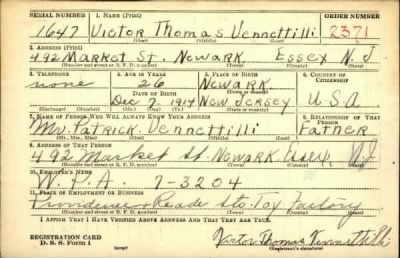 SERIAL NUMBER 1. NAME (Print) ORDER NUMBER
1647 Victor Thomas Vennettilli 2371
(First) (Middle) (Last)
2. ADDRESS (Print)
492 Market St. Newark Essex N J
(Number and street or R. F. D. number) (Town) (County) (State)
3. TELEPHONE 4. AGE IN YEARS 5. PLACE OF BIRTH 6. COUNTRY OF CITIZENSHIP
none 26 Newark
DATE OF BIRTH (Town or county)
Dec 7 1914 New Jersey U.S.A
(Exchange) (Number) (Mo.) (Day) (Yr.) (State or country)
7. NAME OF PERSON WHO WILL ALWAYS KNOW YOUR ADDRESS 8. RELATIONSHIP OF THAT PERSON
Mr. Patrick Vennettilli Father
(Mr., Mrs., Miss) (First) (Middle) (Last)
9. ADDRESS OF THAT PERSON
492 Market St. Newark Essex NJ
(Number and street or R. F. D. number) (Town) (County) (State)
10. EMPLOYER'S NAME
W. P. A 7-3204
11. PLACE OF EMPLOYMENT OR BUSINESS
Reade Sts. Toy Factory
(Number and street or R. F. D. number) (Town) (County) (State)
I AFFIRM THAT I HAVE VERIFIED ABOVE ANSWERS AND THAT THEY ARE TRUE.
REGISTRATION CARD
D. S. S. Form 1 (over) Victor Thomas Vennettilli
(Registrant's signature)